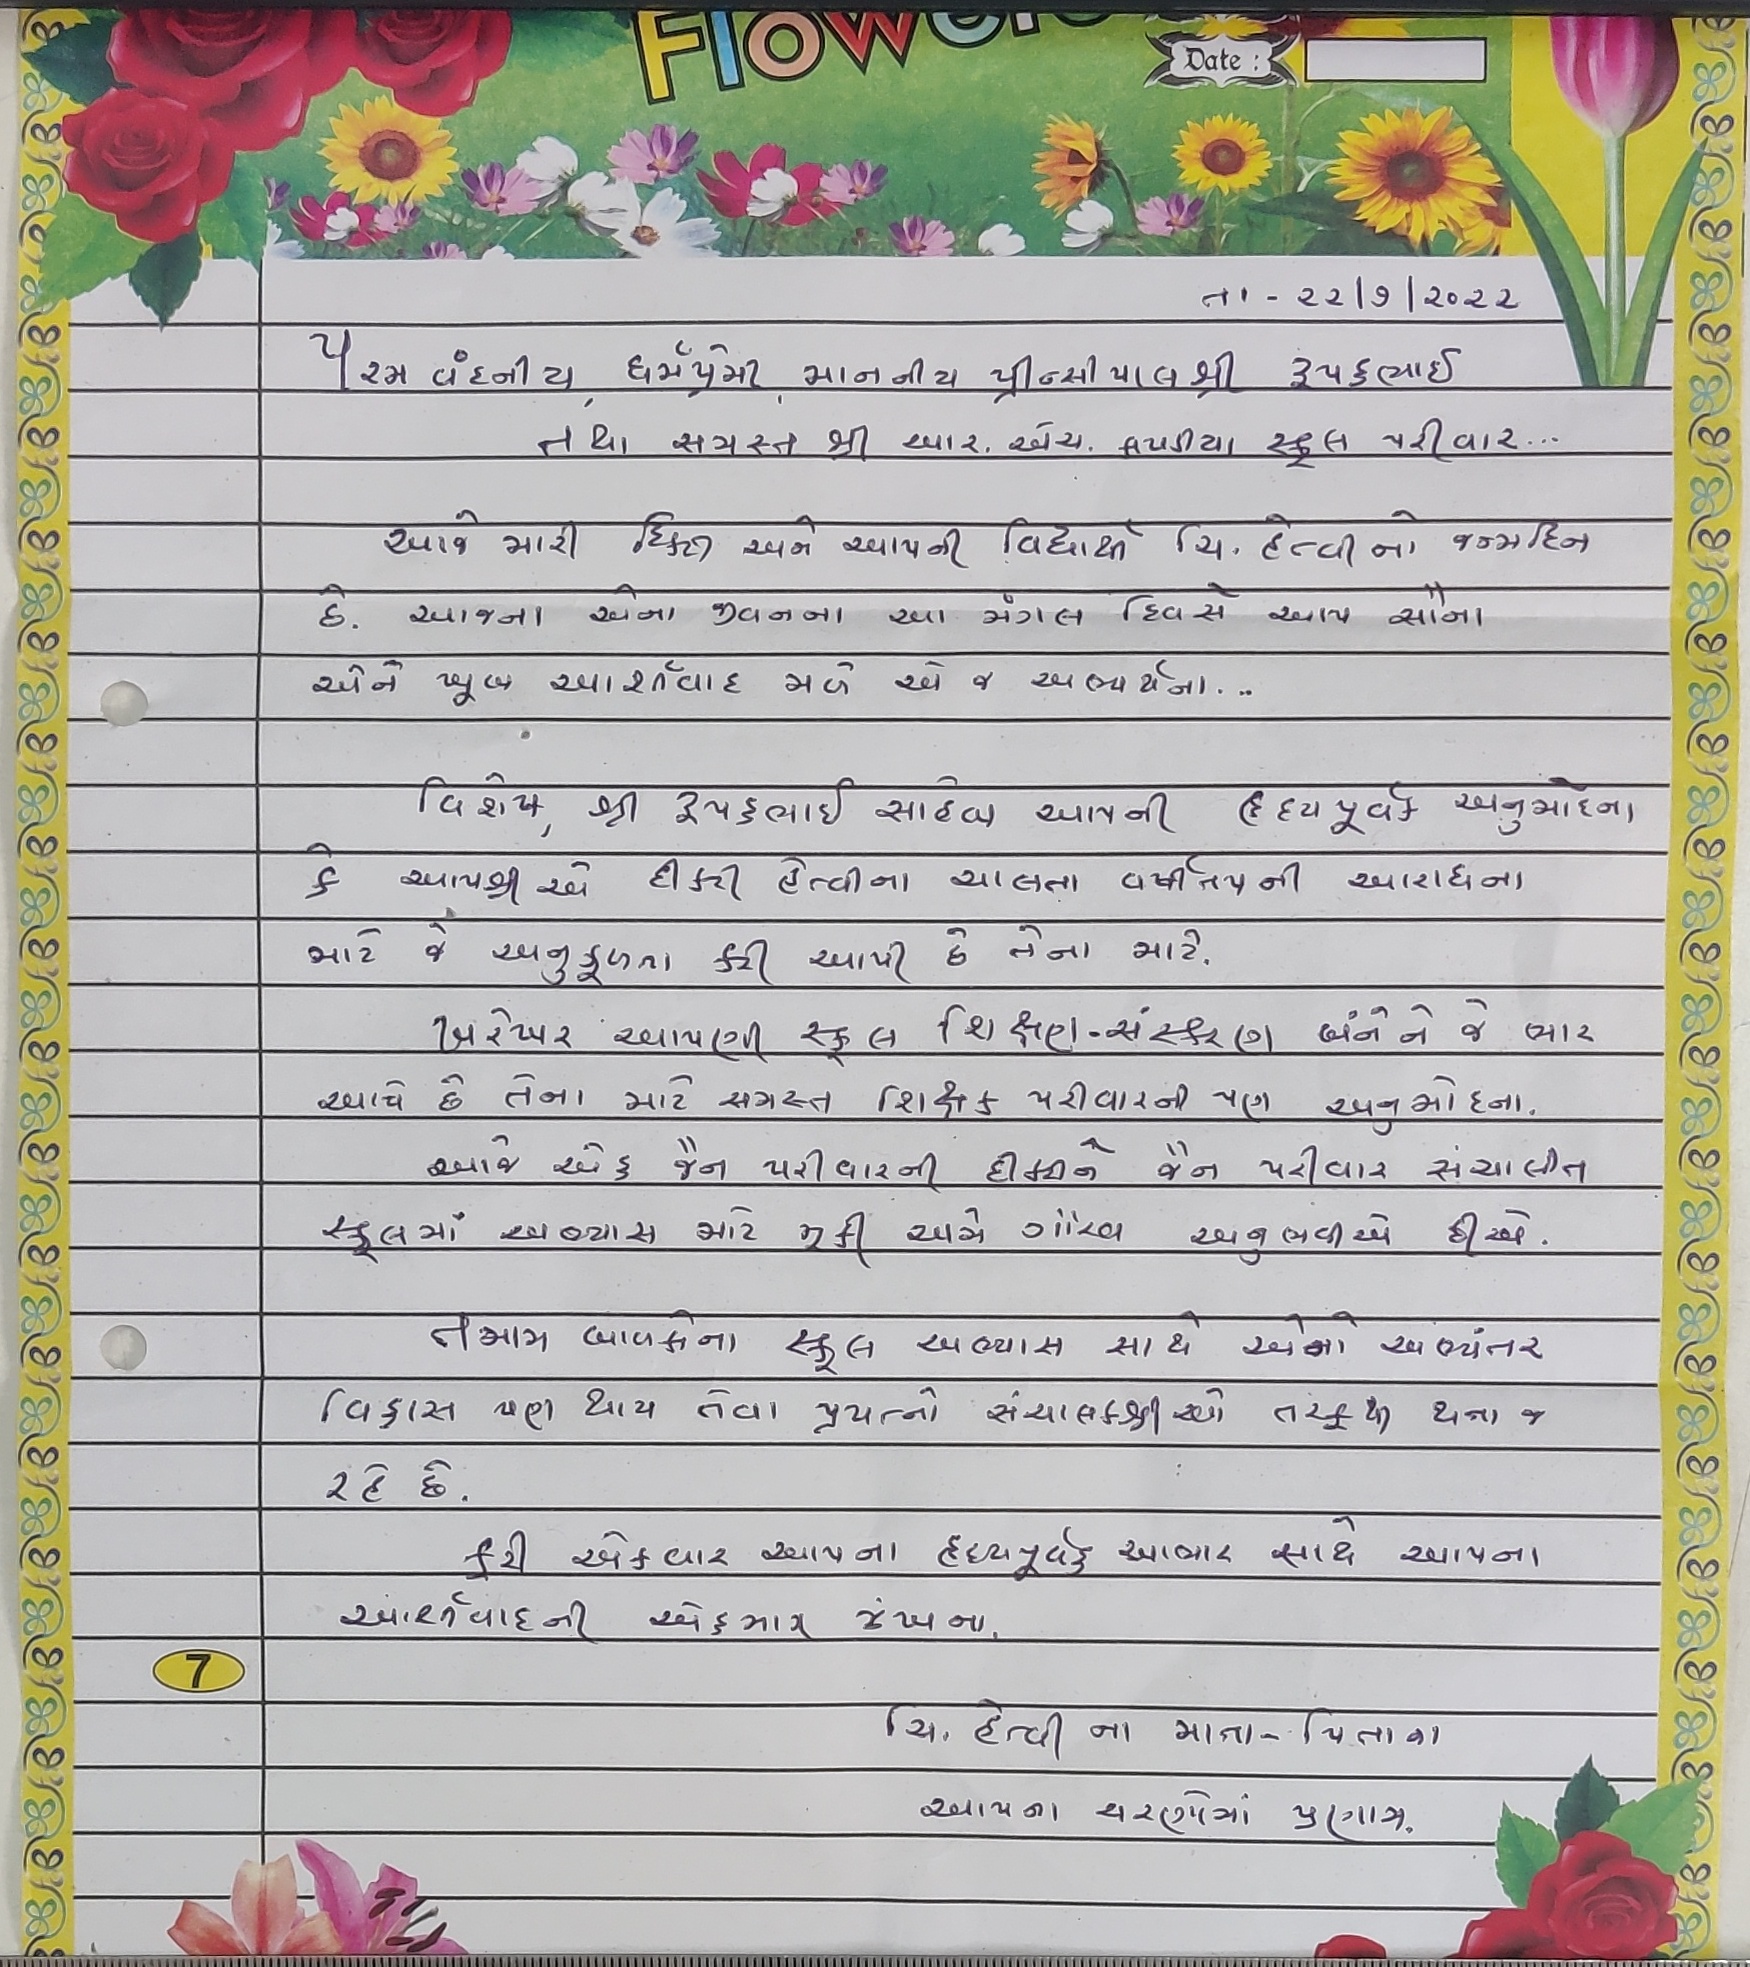 Flowers
Date :
તા - ૨૨/૭/૨૦૨૨
પરમ વંદનીય, ધર્મપ્રેમી, માનનીય પ્રીન્સીપાલશ્રી રૂપકભાઈ
તથા સમસ્ત શ્રી આર. એચ. કાપડીયા સ્કૂલ પરીવાર...
આજે મારી દિકરી અને આપની વિદ્યાર્થી ચિ. હેત્વીનો જન્મદિન
છે. આજના એના જીવનના આ મંગલ દિવસે આપ સૌના
એને ખૂબ આશીર્વાદ મળે એ જ અભ્યર્થના...
વિશેષ, શ્રી રૂપકભાઈ સાહેબ આપની હૃદયપૂર્વક અનુમોદના
કે આપશ્રીએ દીકરી હેત્વીના ચાલતા વર્ષીતપની આરાધના
માટે જે અનુકૂળતા કરી આપી છે તેના માટે.
ખરેખર આપણી સ્કૂલ શિક્ષણ-સંસ્કરણ બંનેને જે ભાર
આપે છે તેના માટે સમસ્ત શિક્ષક પરીવારની પણ અનુમોદના.
આજે એક જૈન પરીવારની દીકરીને જૈન પરીવાર સંચાલીત
સ્કૂલમાં અભ્યાસ માટે મૂકી અમે ગૌરવ અનુભવીએ છીએ.
તમામ બાળકોના સ્કૂલ અભ્યાસ સાથે એનો અભ્યંતર
વિકાસ પણ થાય તેવા પ્રયત્નો સંચાલકશ્રીઓ તરફથી થતા જ
રહે છે.
ફરી એકવાર આપના હૃદયપૂર્વક આભાર સાથે આપના
આશીર્વાદની એકમાત્ર ઝંખના.
7
ચિ. હેત્વી ના માતા-પિતાના
આપના ચરણોમાં પ્રણામ.